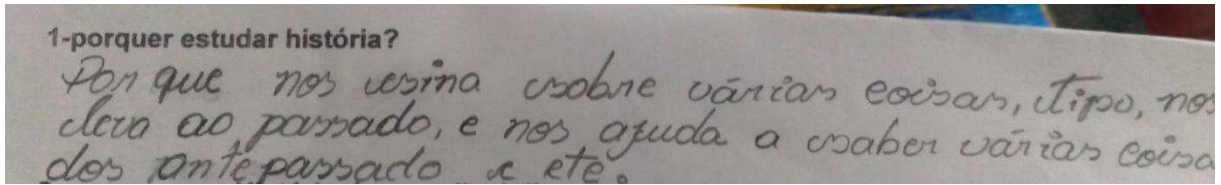 1-porquer estudar história?
Por que nos esina sobre várias coisas, tipo, nos
leva ao passado, e nos ajuda a saber várias coisa
dos antepassado e etc.